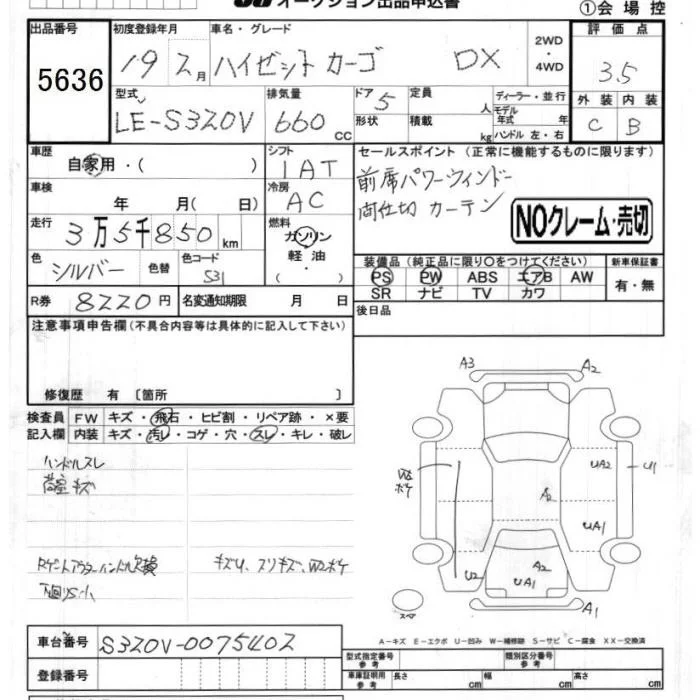 オークション出品申込書
①会場控
出品番号
5636
初度登録年月
19 2月
車名・グレード
ハイゼット カーゴ DX
2WD
・
4WD
評価点
3.5
型式
LE-S320V
排気量
660 CC
ドア
5
形状
定員
人
積載
kg
ディーラー・並行
モデル
年式 年
ハンドル 左・右
外装 内装
C B
車歴
自家用・( )
シフト
IAT
セールスポイント (正常に機能するものに限ります)
前席パワーウィンドー
間仕切 カーテン
NOクレーム・売切
車検
年 月( 日)
冷房
AC
走行
3万5千850 km
燃料
ガソリン
軽油・
( )
色
シルバー
色替
色コード
S31
装備品 (純正品に限り○をつけてください)
PS PW ABS エアB AW
SR ナビ TV カワ
新車保証書
有・無
R券
8220円
名変通知期限 月 日
後日品
注意事項申告欄 (不具合内容等は具体的に記入して下さい)
修復歴 有 〔箇所 〕
検査員
記入欄
FW キズ・飛石・ヒビ割・リペア跡・×要
内装 キズ・汚レ・コゲ・穴・スレ・キレ・破レ
ハンドルスレ
荷室キズ
Rゲートアウターハンドル欠損
下廻りS小
キズU、スリキズ、W2ボケ
A3
A2
W2
ボケ
UA2
U1
A2
UA1
U2
A2
UA1
A1
スペア
A-キズ E-エクボ U-凹み W-補修跡 S-サビ C-腐食 XX-交換済
車台番号
S320V-0075402
登録番号
型式指定番号
参考
類別区分番号
参考
車庫証明用
参考
長さ cm
幅 cm
高さ cm